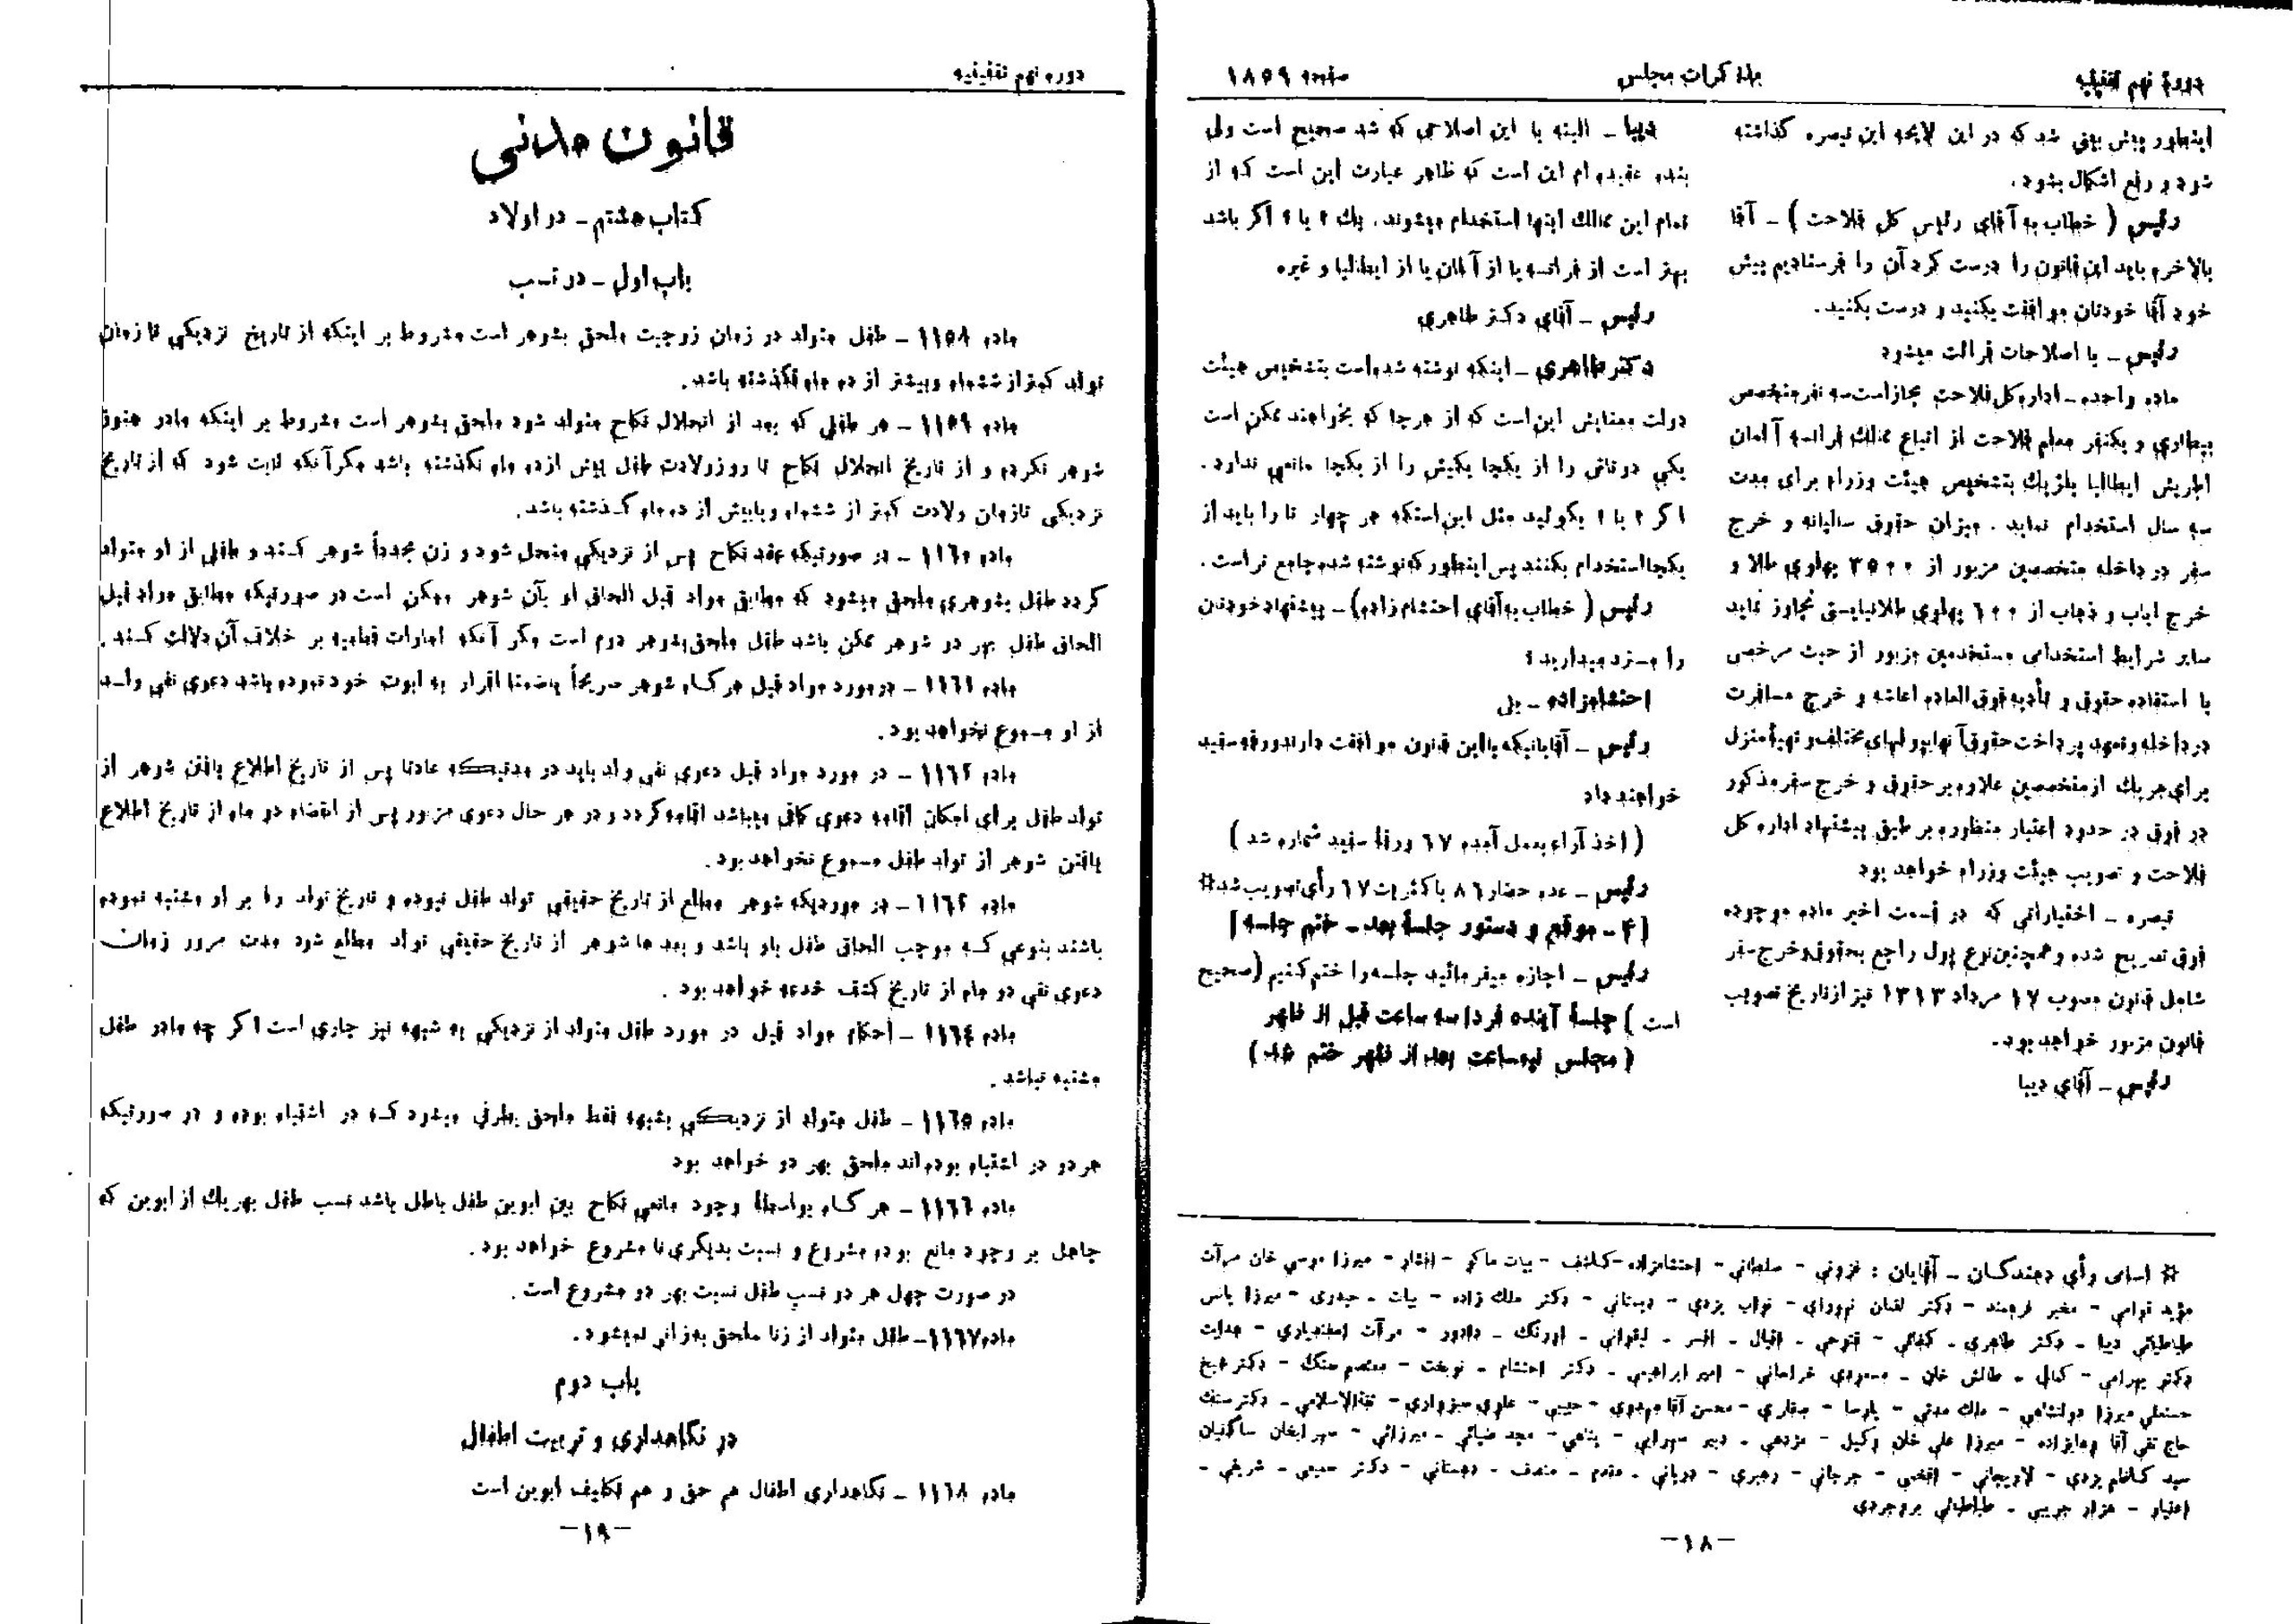 دورهٔ نهم تقنینیه
مذاکرات مجلس
صفحه ۱۸۵۹
اینطور پیش بینی شد که در این لایحه این تبصره گذاشته
شود و رفع اشکال بشود.
رئیس ( خطاب به آقای رئیس کل فلاحت ) ـ آقا
بالاخره باید این قانون را درست کرد آن را فرستادیم پیش
خود آقا خودتان موافقت بکنید و درست بکنید.
رئیس ـ با اصلاحات قرائت میشود
ماده واحده ـ اداره کل فلاحت مجاز است سه نفر متخصص
بیطاری و یکنفر معلم فلاحت از اتباع ممالک فرانسه آلمان
اطریش ایطالیا بلژیك بتشخیص هیئت وزراء برای مدت
سه سال استخدام نماید . میزان حقوق سالیانه و خرج
سفر در داخله متخصصین مزبور از ۳۵۰۰ پهلوی طلا و
خرج ایاب و ذهاب از ۶۰۰ پهلوی طلا نبایستی تجاوز نماید
سایر شرایط استخدامی مستخدمین مزبور از حیث مرخصی
با استفاده حقوق و تأدیه فوق العاده اعاشه و خرج مسافرت
در داخله و تعهد پرداخت حقوق آنها بپولهای مختلف و تهیهٔ منزل
برای هر یك از متخصصین علاوه بر حقوق و خرج سفر مذکور
در فوق در حدود اعتبار منظوره بر طبق پیشنهاد اداره کل
فلاحت و تصویب هیئت وزراء خواهد بود
تبصره ـ اختیاراتی که در قسمت اخیر ماده موجوده
فوق تصریح شده و همچنین نوع پول راجع بحقوق و خرج سفر
شامل قانون مصوب ۱۷ مرداد ۱۳۱۳ نیز از تاریخ تصویب
قانون مزبور خواهد بود.
رئیس ـ آقای دیبا
دیبا ـ البته با این اصلاحی که شد صحیح است ولی
بنده عقیده ام این است که ظاهر عبارت این است که از
تمام این ممالك اینها استخدام میشوند. یك ۲ یا ۱ اگر باشد
بهتر است از فرانسه یا از آلمان یا از ایطالیا و غیره
رئیس ـ آقای دکتر طاهری
دکتر طاهری ـ اینکه نوشته شده است بتشخیص هیئت
دولت معنایش این است که از هر جا که بخواهند ممکن است
یکی دو تائی را از یکجا یکیش را از یکجا مانعی ندارد.
اگر ۲ یا ۱ بگوئید مثل این استکه هر چهار تا را باید از
یکجا استخدام بکنند پس اینطور که نوشته شده جامع تر است.
رئیس ( خطاب به آقای احتشام زاده) ـ پیشنهاد خودتان
را مسترد میدارید؟
احتشامزاده ـ بلی
رئیس ـ آقایانیکه با این قانون موافقت دارند ورقه سفید
خواهند داد
( اخذ آراء بعمل آمده ۶۷ ورقهٔ سفید شماره شد )
رئیس ـ عده حضار ۸۶ با کثریت ۶۷ رأی تصویب شد #
[ ۴ ـ موقع و دستور جلسهٔ بعد ـ ختم جلسه ]
رئیس ـ اجازه میفرمائید جلسه را ختم کنیم (صحیح
است ) جلسهٔ آینده فردا سه ساعت قبل از ظهر
( مجلس نیمساعت بعد از ظهر ختم شد )
# اسامی رأی دهندگان ـ آقایان : فزونی - سلطانی - احتشامزاده - کاشف - بیات ماکو - افشار - میرزا موسی خان مرآت
مؤید قوامی - مخبر فرهمند - دکتر لقمان نهورای - نواب یزدی - دبستانی - دکتر ملك زاده - بیات - حیدری - میرزا یانس
طباطبائی دیبا - دکتر طاهری - کفائی - فتوحی - اقبال - افسر - لیقوانی - اورنگ - دادور - مرآت اسفندیاری - هدایت
دکتر بهرامی - کمالی - طالش خان - مسعودی خراسانی - امیر ابراهیمی - دکتر احتشام - نوبخت - معتصم سنگ - دکتر شیخ
حسنعلی میرزا دولتشاهی - ملك مدنی - پارسا - صفاری - محسن آقا مهدوی - حبیبی - علوی سبزواری - ثقةالاسلامی - دکتر سنگ
حاج تقی آقا وهابزاده - میرزا علی خان وکیل - مژدهی - دبیر سهرابی - پناهی - مجد ضیائی - میرزائی - سهرابخان ساگینیان
سید کاظم یزدی - لاریجانی - افخمی - جرجانی - رهبری - دربانی - مقدم - منصف - دهستانی - دکتر سمیعی - شریفی -
اعتبار - هزار جریبی - طباطبائی بروجردی
-۱۸-
دوره نهم تقنینیه
قانون مدنی
کتاب هشتم ـ در اولاد
باب اول ـ در نسب
ماده ۱۱۵۸ ـ طفل متولد در زمان زوجیت ملحق بشوهر است مشروط بر اینکه از تاریخ نزدیکی تا زمان
تولد کمتر از ششماه و بیشتر از ده ماه نگذشته باشد.
ماده ۱۱۵۹ ـ هر طفلی که بعد از انحلال نکاح متولد شود ملحق بشوهر است مشروط بر اینکه مادر هنوز
شوهر نکرده و از تاریخ انحلال نکاح تا روز ولادت طفل بیش از ده ماه نگذشته باشد مگر آنکه ثابت شود که از تاریخ
نزدیکی تا زمان ولادت کمتر از ششماه و یا بیش از ده ماه گذشته باشد.
ماده ۱۱۶۰ ـ در صورتیکه عقد نکاح پس از نزدیکی منحل شود و زن مجدداً شوهر کند و طفلی از او متولد
گردد طفل بشوهری ملحق میشود که مطابق مواد قبل الحاق او بآن شوهر ممکن است در صورتیکه مطابق مواد قبل
الحاق طفل بهر دو شوهر ممکن باشد طفل ملحق بشوهر دوم است مگر آنکه امارات قطعیه بر خلاف آن دلالت کند.
ماده ۱۱۶۱ ـ در مورد مواد قبل هر گاه شوهر صریحاً یا ضمناً اقرار به ابوت خود نموده باشد دعوی نفی ولد
از او مسموع نخواهد بود.
ماده ۱۱۶۲ ـ در مورد مواد قبل دعوی نفی ولد باید در مدتیکه عادتاً پس از تاریخ اطلاع یافتن شوهر از
تولد طفل برای امکان اقامه دعوی کافی میباشد اقامه گردد و در هر حال دعوی مزبور پس از انقضاء دو ماه از تاریخ اطلاع
یافتن شوهر از تولد طفل مسموع نخواهد بود.
ماده ۱۱۶۳ ـ در موردیکه شوهر مطلع از تاریخ حقیقی تولد طفل نبوده و تاریخ تولد را بر او مشتبه نموده
باشند بنوعی که موجب الحاق طفل باو باشد و بعدها شوهر از تاریخ حقیقی تولد مطلع شود مدت مرور زمان
دعوی نفی دو ماه از تاریخ کشف خدعه خواهد بود .
ماده ۱۱۶۴ ـ احکام مواد قبل در مورد طفل متولد از نزدیکی به شبهه نیز جاری است اگر چه مادر طفل
مشتبه نباشد.
ماده ۱۱۶۵ ـ طفل متولد از نزدیکی بشبهه فقط ملحق بطرفی میشود که در اشتباه بوده و در صورتیکه
هر دو در اشتباه بوده اند ملحق بهر دو خواهد بود
ماده ۱۱۶۶ ـ هر گاه بواسطهٔ وجود مانعی نکاح بین ابوین طفل باطل باشد نسب طفل بهر یك از ابوین که
جاهل بر وجود مانع بوده مشروع و نسبت بدیگری نا مشروع خواهد بود.
در صورت جهل هر دو نسب طفل نسبت بهر دو مشروع است.
ماده ۱۱۶۷ ـ طفل متولد از زنا ملحق به زانی نمیشود.
باب دوم
در نگاهداری و تربیت اطفال
ماده ۱۱۶۸ ـ نگاهداری اطفال هم حق و هم تکلیف ابوین است
-۱۹-